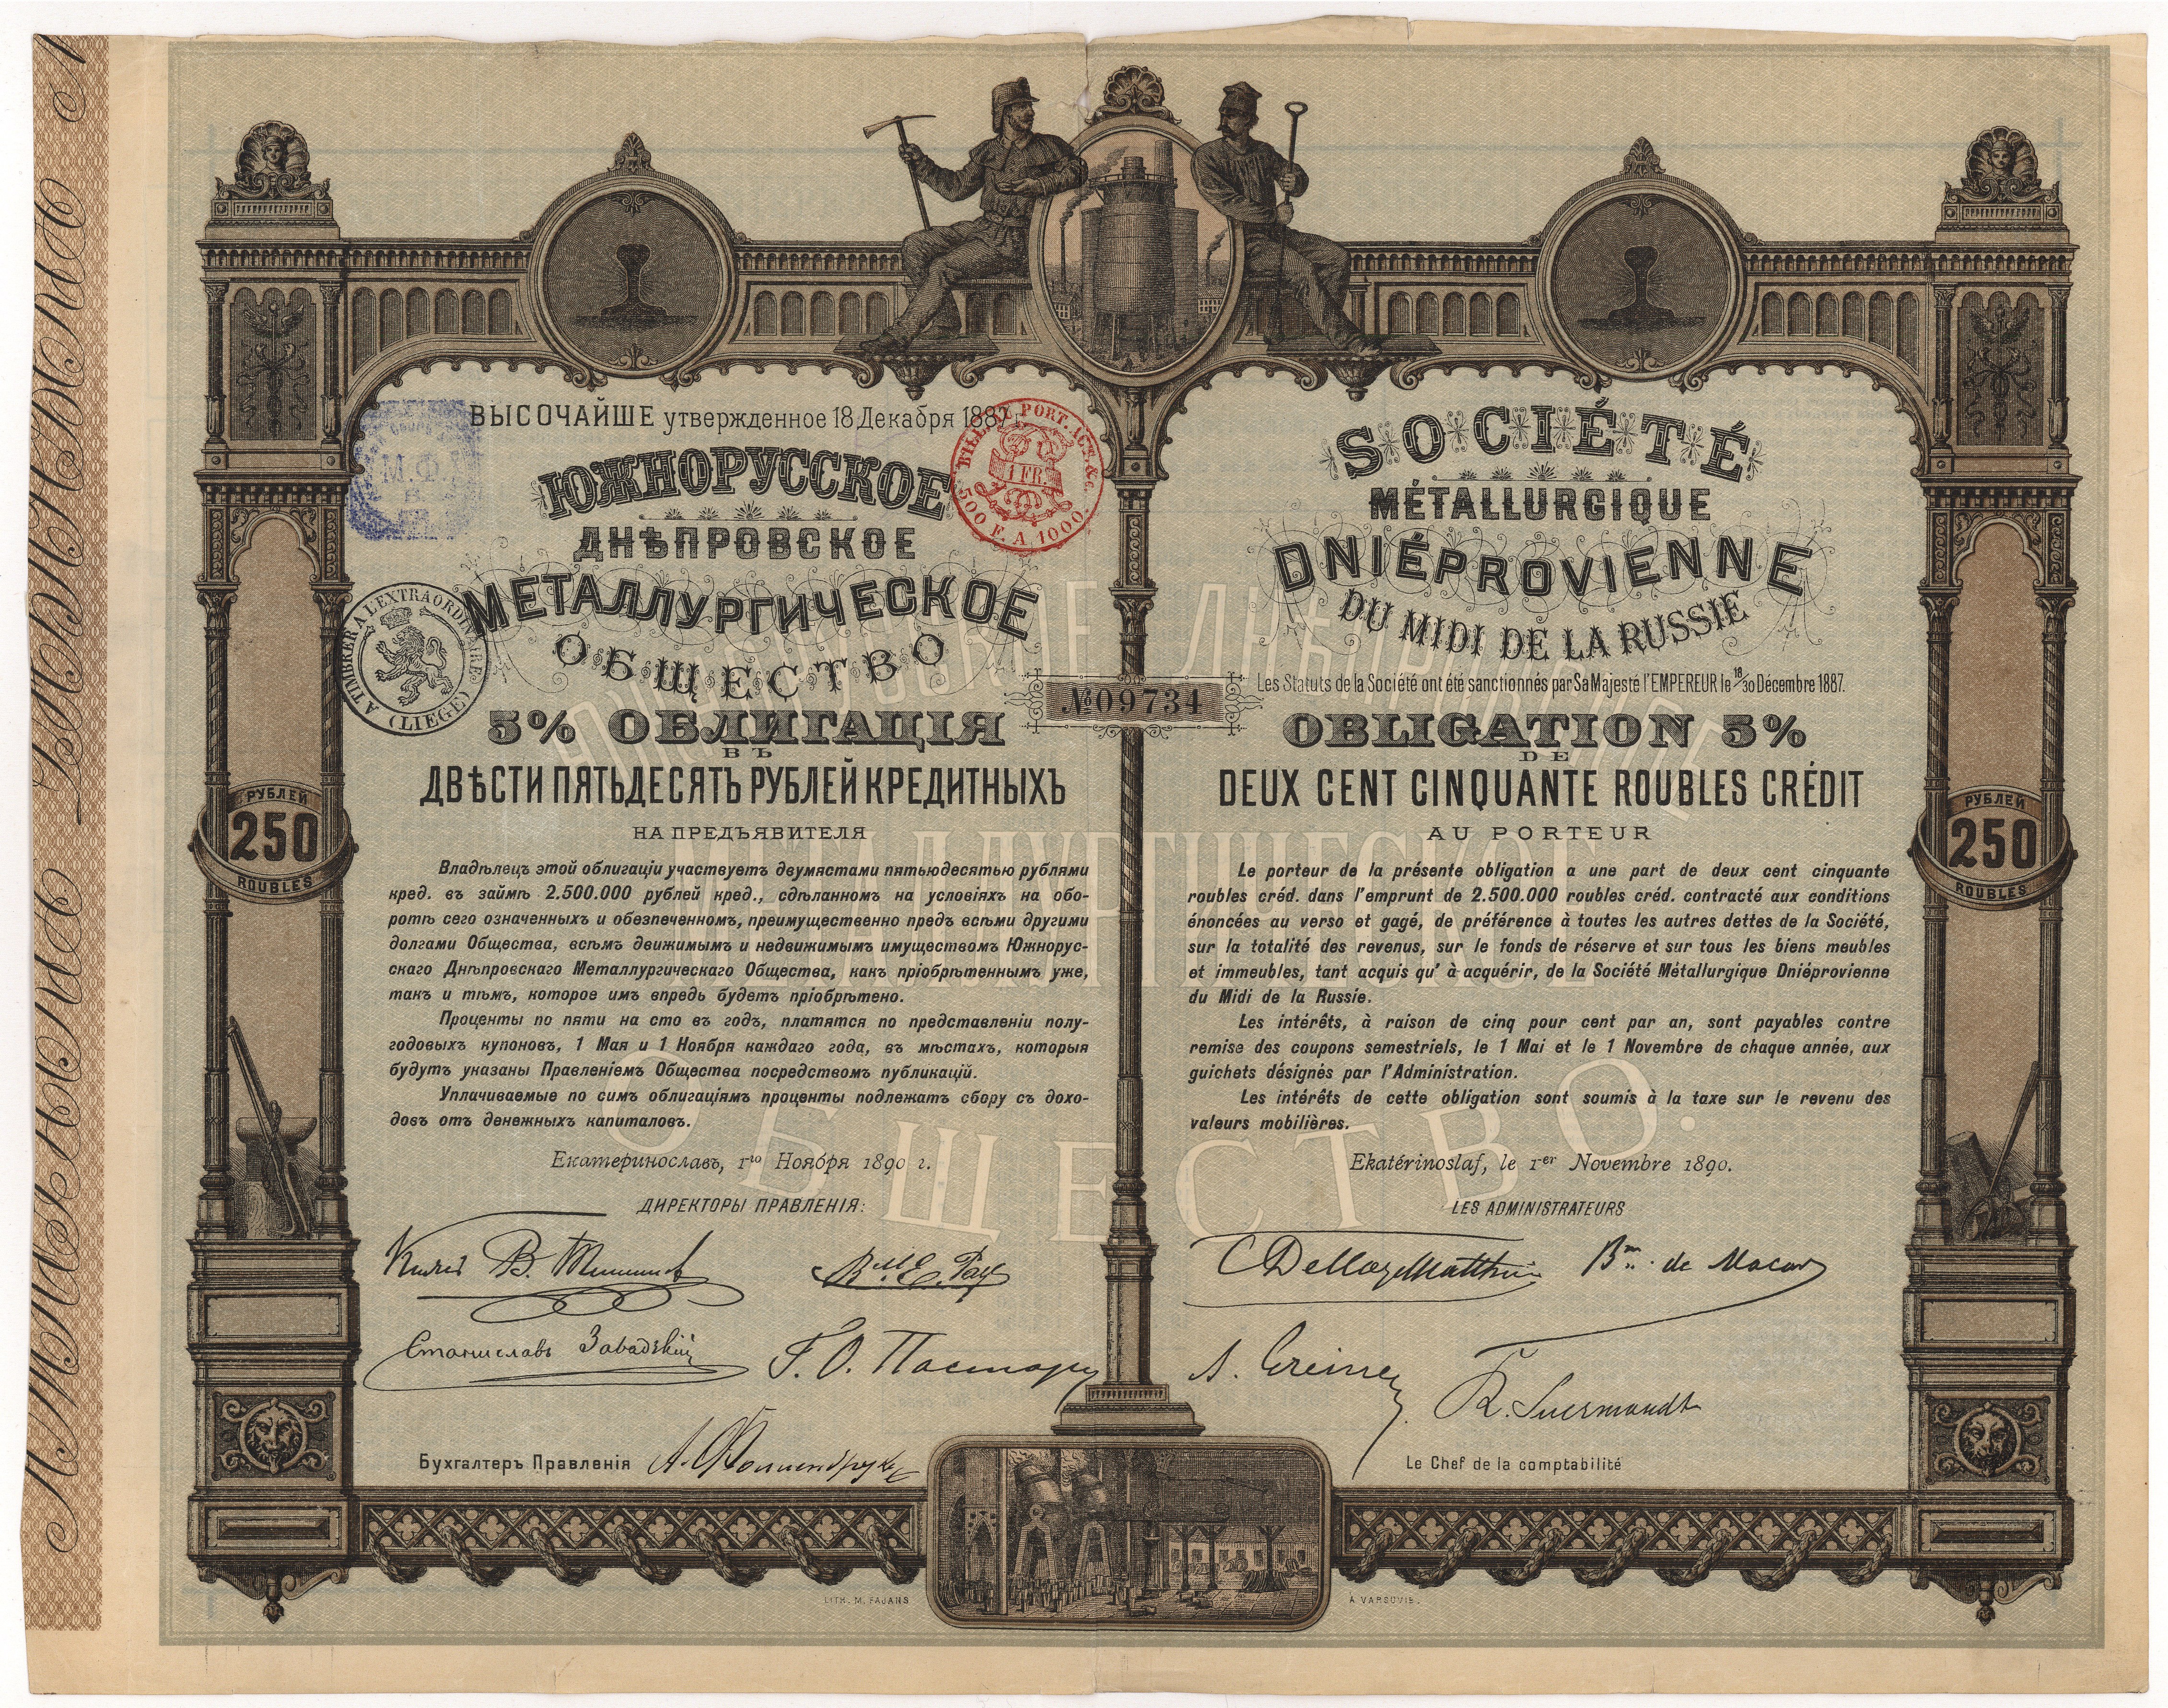 ВЫСОЧАЙШЕ утвержденное 18 Декабря 1887
ЮЖНОРУССКОЕ
ДНѢПРОВСКОЕ
МЕТАЛЛУРГИЧЕСКОЕ
ОБЩЕСТВО
5% ОБЛИГАЦІЯ
ВЪ
ДВѢСТИ ПЯТЬДЕСЯТЪ РУБЛЕЙ КРЕДИТНЫХЪ
НА ПРЕДЪЯВИТЕЛЯ
Владѣлецъ этой облигаціи участвуетъ двумястами пятьюдесятью рублями
кред. въ займѣ 2.500.000 рублей кред., сдѣланномъ на условіяхъ на обо-
ротѣ сего означенныхъ и обезпеченномъ, преимущественно предъ всѣми другими
долгами Общества, всѣмъ движимымъ и недвижимымъ имуществомъ Южнорус-
скаго Днѣпровскаго Металлургическаго Общества, какъ пріобрѣтеннымъ уже,
такъ и тѣмъ, которое имъ впредь будетъ пріобрѣтено.
Проценты по пяти на сто въ годъ, платятся по представленіи полу-
годовыхъ купоновъ, 1 Мая и 1 Ноября каждаго года, въ мѣстахъ, которыя
будутъ указаны Правленіемъ Общества посредствомъ публикацій.
Уплачиваемые по симъ облигаціямъ проценты подлежатъ сбору съ дохо-
довъ отъ денежныхъ капиталовъ.
Екатеринославъ, 1го Ноября 1890 г.
ДИРЕКТОРЫ ПРАВЛЕНІЯ:
Станиславъ Завадскій
Бухгалтеръ Правленія
SOCIÉTÉ
MÉTALLURGIQUE
DNIÉPROVIENNE
DU MIDI DE LA RUSSIE
Les Statuts de la Société ont été sanctionnés par Sa Majesté l'EMPEREUR le 18/30 Décembre 1887.
OBLIGATION 5%
DE
DEUX CENT CINQUANTE ROUBLES CRÉDIT
AU PORTEUR
Le porteur de la présente obligation a une part de deux cent cinquante
roubles créd. dans l'emprunt de 2.500.000 roubles créd. contracté aux conditions
énoncées au verso et gagé, de préférence à toutes les autres dettes de la Société,
sur la totalité des revenus, sur le fonds de réserve et sur tous les biens meubles
et immeubles, tant acquis qu' à acquérir, de la Société Métallurgique Dniéprovienne
du Midi de la Russie.
Les intérêts, à raison de cinq pour cent par an, sont payables contre
remise des coupons semestriels, le 1 Mai et le 1 Novembre de chaque année, aux
guichets désignés par l'Administration.
Les intérêts de cette obligation sont soumis à la taxe sur le revenu des
valeurs mobilières.
Ekatérinoslaf, le 1er Novembre 1890.
LES ADMINISTRATEURS
Bon de Macar
A. Greiner
R. Suermondt
Le Chef de la comptabilité
№ 09734
РУБЛЕЙ
250
ROUBLES
РУБЛЕЙ
250
ROUBLES
1 FR.
500 F. A 1000.
A TIMBRER A L'EXTRAORDINAIRE
(LIEGE)
М.Ф.
ЮЖНОРУССКОЕ ДНѢПРОВСКОЕ
МЕТАЛЛУРГИЧЕСКОЕ
ОБЩЕСТВО.
LITH. M. FAJANS
A VARSOVIE.